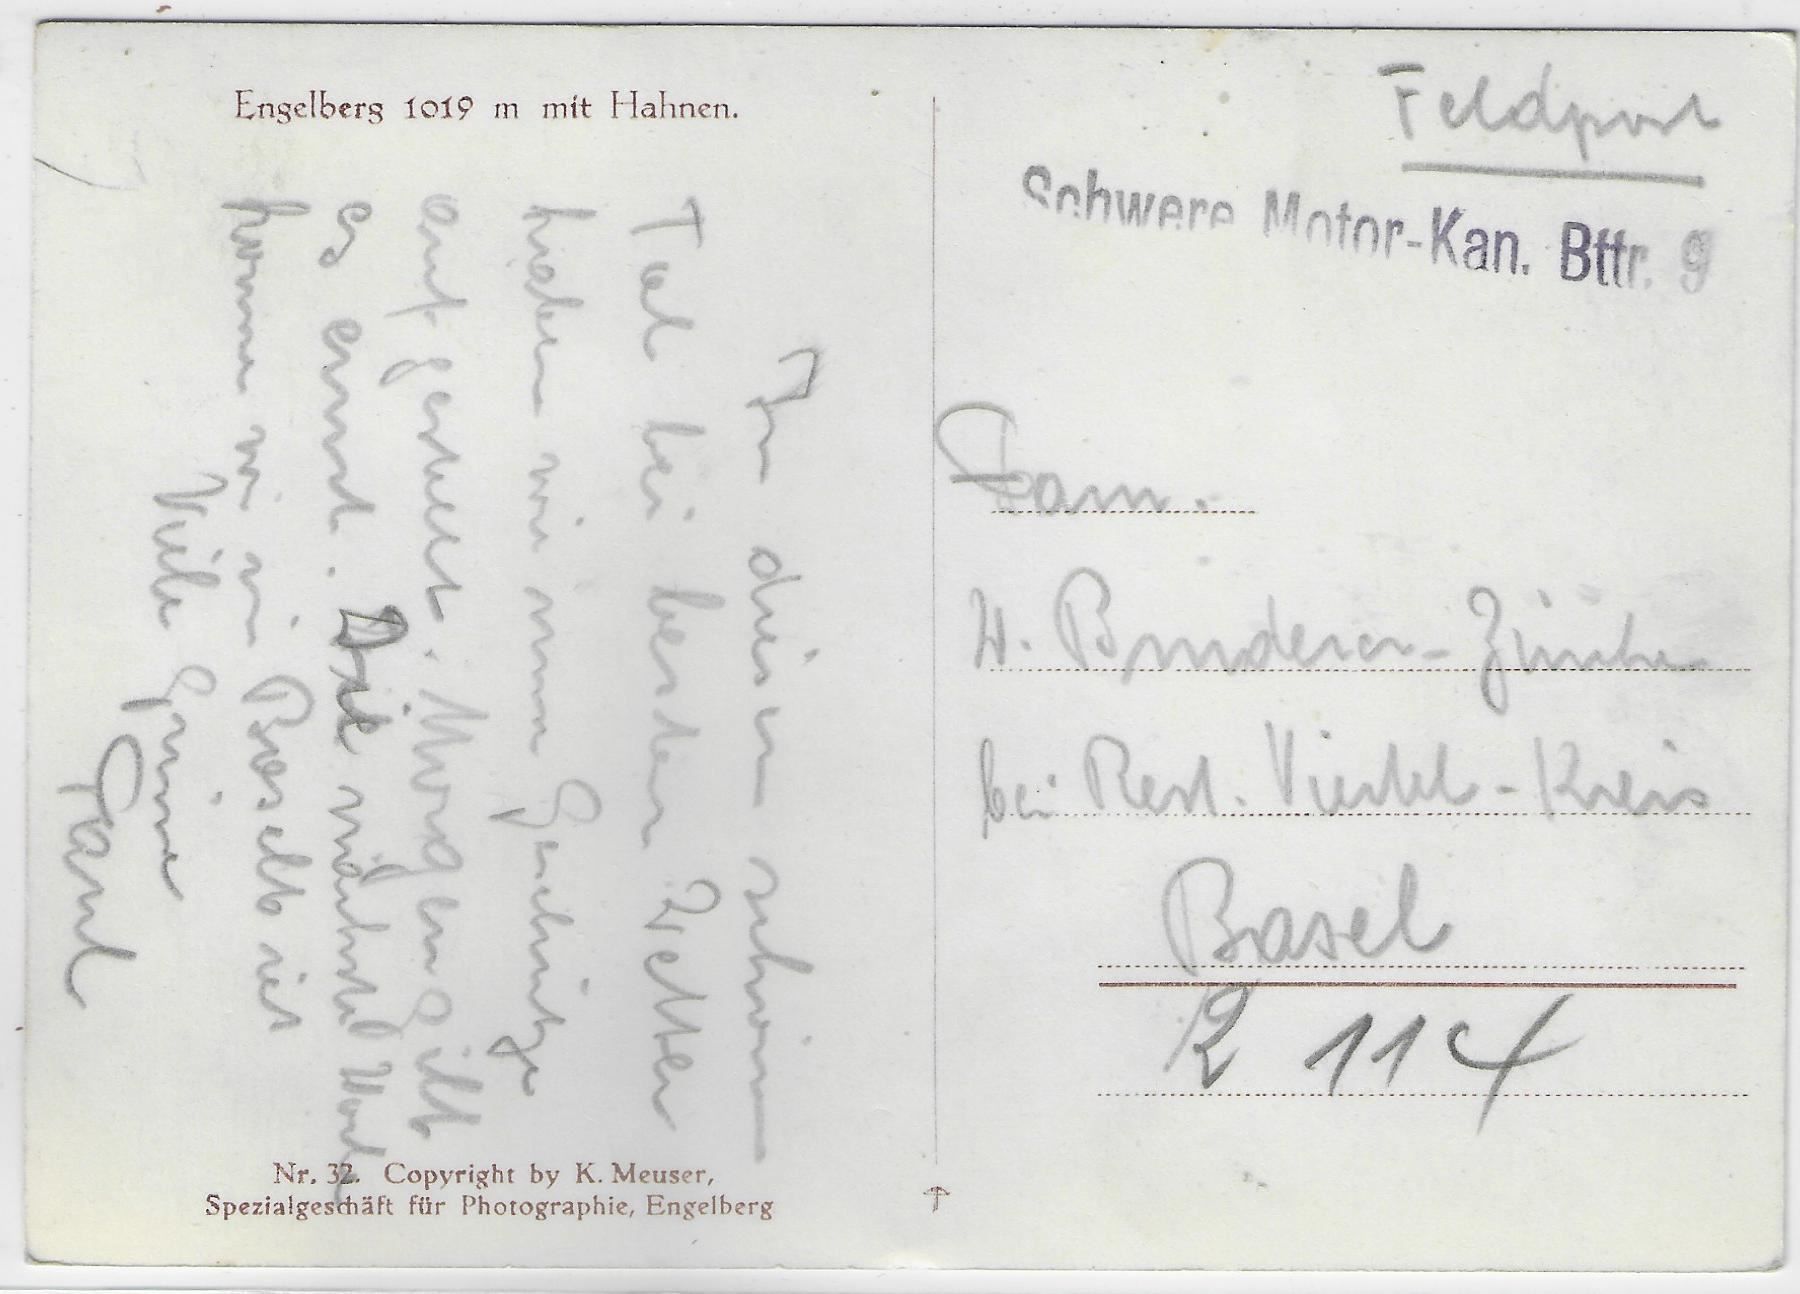 Engelberg 1019 m mit Hahnen.
In diesem schönen
Tal bei bestem Wetter
haben wir unsere Geschütze
auf gestellt. Morgen gilt
es ernst. Die nächste Woche
kommen wir in Basel
Viele Grüsse
Paul
Nr. 32. Copyright by K. Meuser,
Spezialgeschäft für Photographie, Engelberg
Feldpost
Schwere Motor-Kan. Bttr. 9
Fam.
W. Bruderer-Zürcher
bei Rest. Viertel-Kreis
Basel
2 114